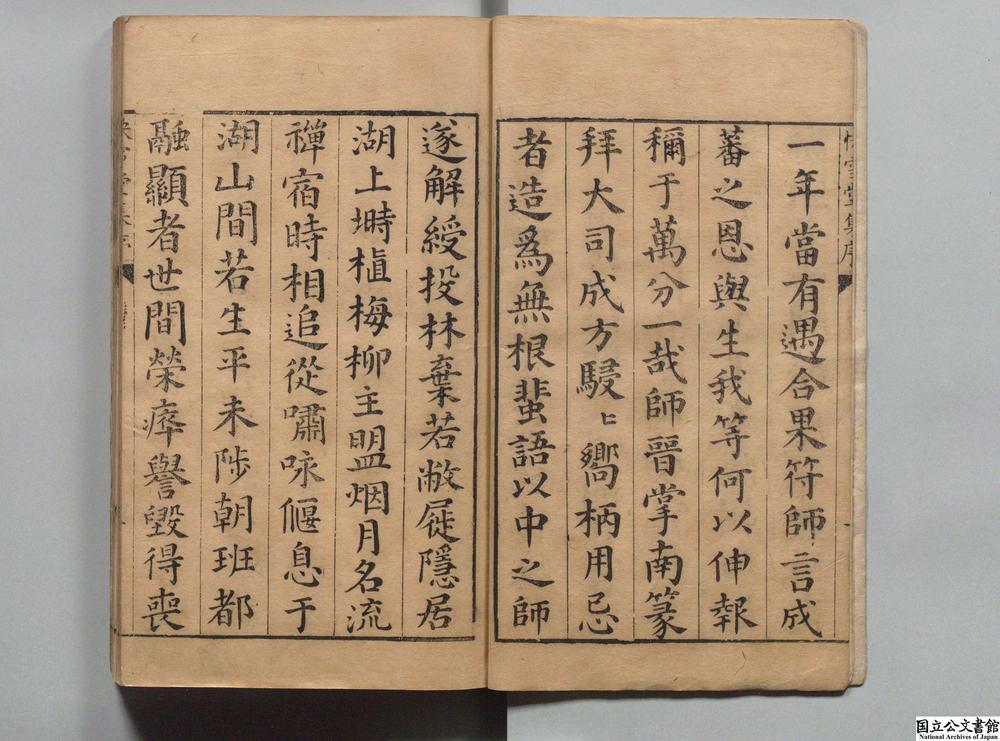 一年當有遇合果符師言成
蕃之恩與生我等何以伸報
稱于萬分一哉師晉掌南篆
拜大司成方駸〻嚮柄用忌
者造爲無根蜚語以中之師
遂解綬投林棄若敝屣隱居
湖上塒植梅柳主盟烟月名流
禪宿時相追從嘯咏偃息于
湖山間若生平未陟朝班都
融顯者世間榮瘁譽毀得喪
雪堂集序
国立公文書館
National Archives of Japan